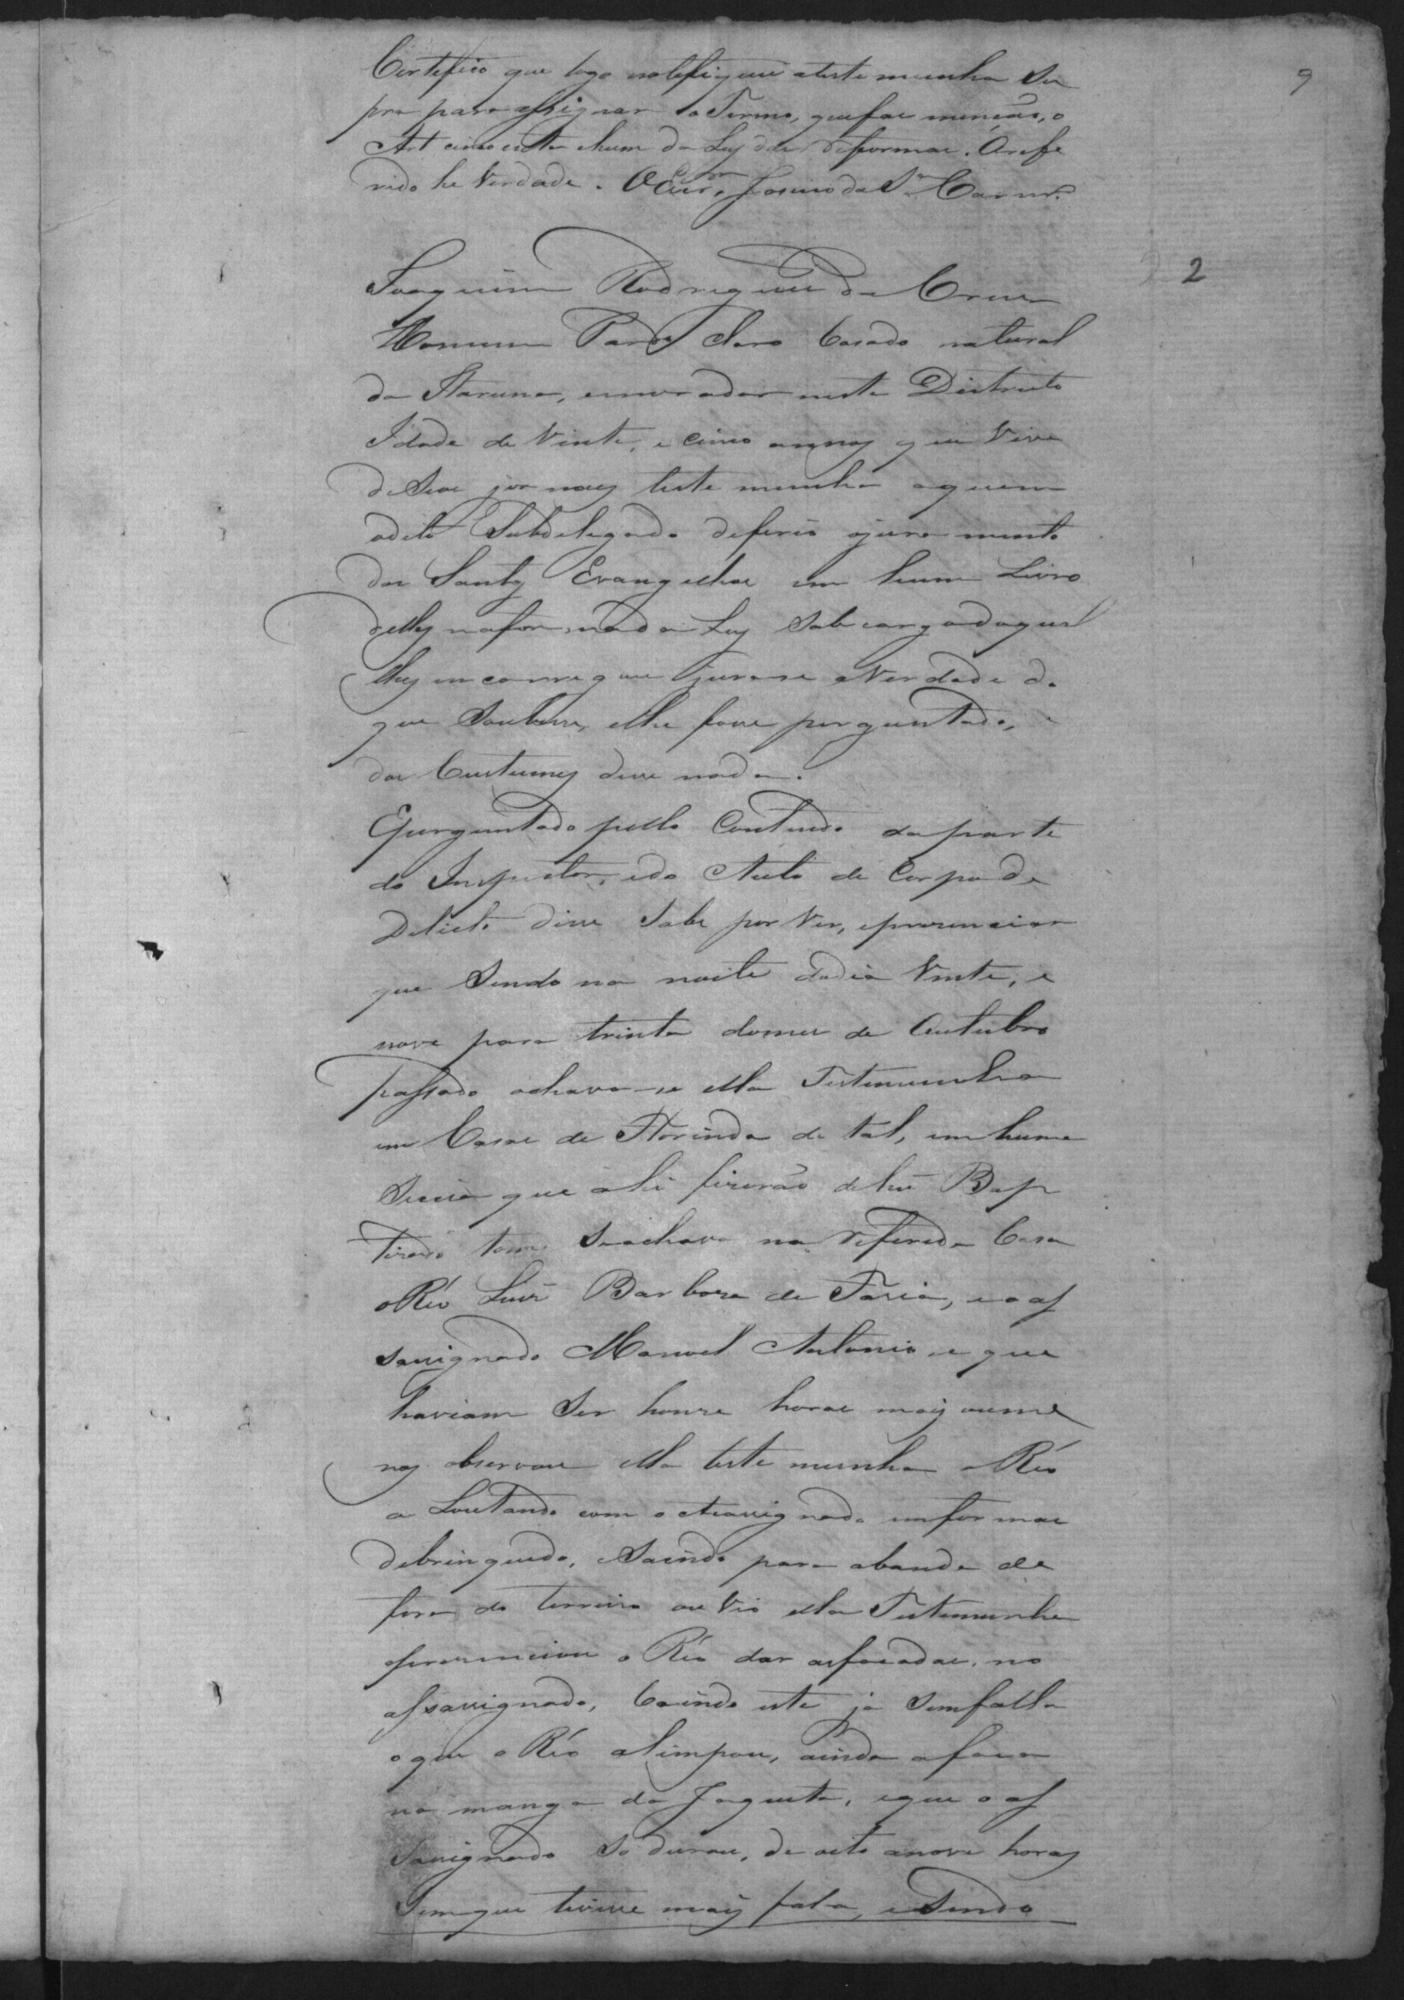 9
Certefico que logo notefiquei atestemunha Su
pra para assignar o Termo, quefas mensão, o
Art cincoenta ehum da Ley da reforma. Orefe
rido he Verdade. OEscr.am Josino da S.a Carnr.o
2
Joaquim Rodrigues da Crus
Homem Pardo claro Casado natural
da Itaruna, emorador neste Districto
Idade de Vinte, e cinco annos que Vive
deSeos jornaes teste munha aquem
odito Subdelegado deferio ojura mento
dos Santos Evangelhos em hum Livro
delles nafor mada Ley Sob cargodoqual
lhes encarregou jurase aVerdade do
que Soubese, elhe fosse perguntado,
dos Custumes disse nada.
Eperguntado pello Contheudo daparte
do Inspector, edo Auto de Corpo de
Delicto disse Sabe por Ver, eprezenciar
que Sendo na noite dodia Vinte, e
nove para trinta domes de Outubro
passado achava-se ella Testemunha
em Casa de Florinda de tal, em huma
Sucia que ahi fizerão dehu Bap
tizado tambem Seachava na referida Casa
oReo Luis Barboza de Faria, eoas
sassignado Manoel Antonio e que
haviam Ser honze horas mais oume
nos observou ella teste munha o Reo
a Loutando com o Assassignado emformas
debrinquedo, eSaindo para abanda de
fora do terreiro ou Vio ella Testemunha
eprezenciou o Reo dar asfacadas no
assassignado, Caindo este ja Semfalla
oque o Reo alimpou, ainda afaca
na manga da Jaqueta, eque o as
sassignado So durou, de oito anove horas
Semque tivesse mais fala, eSendo